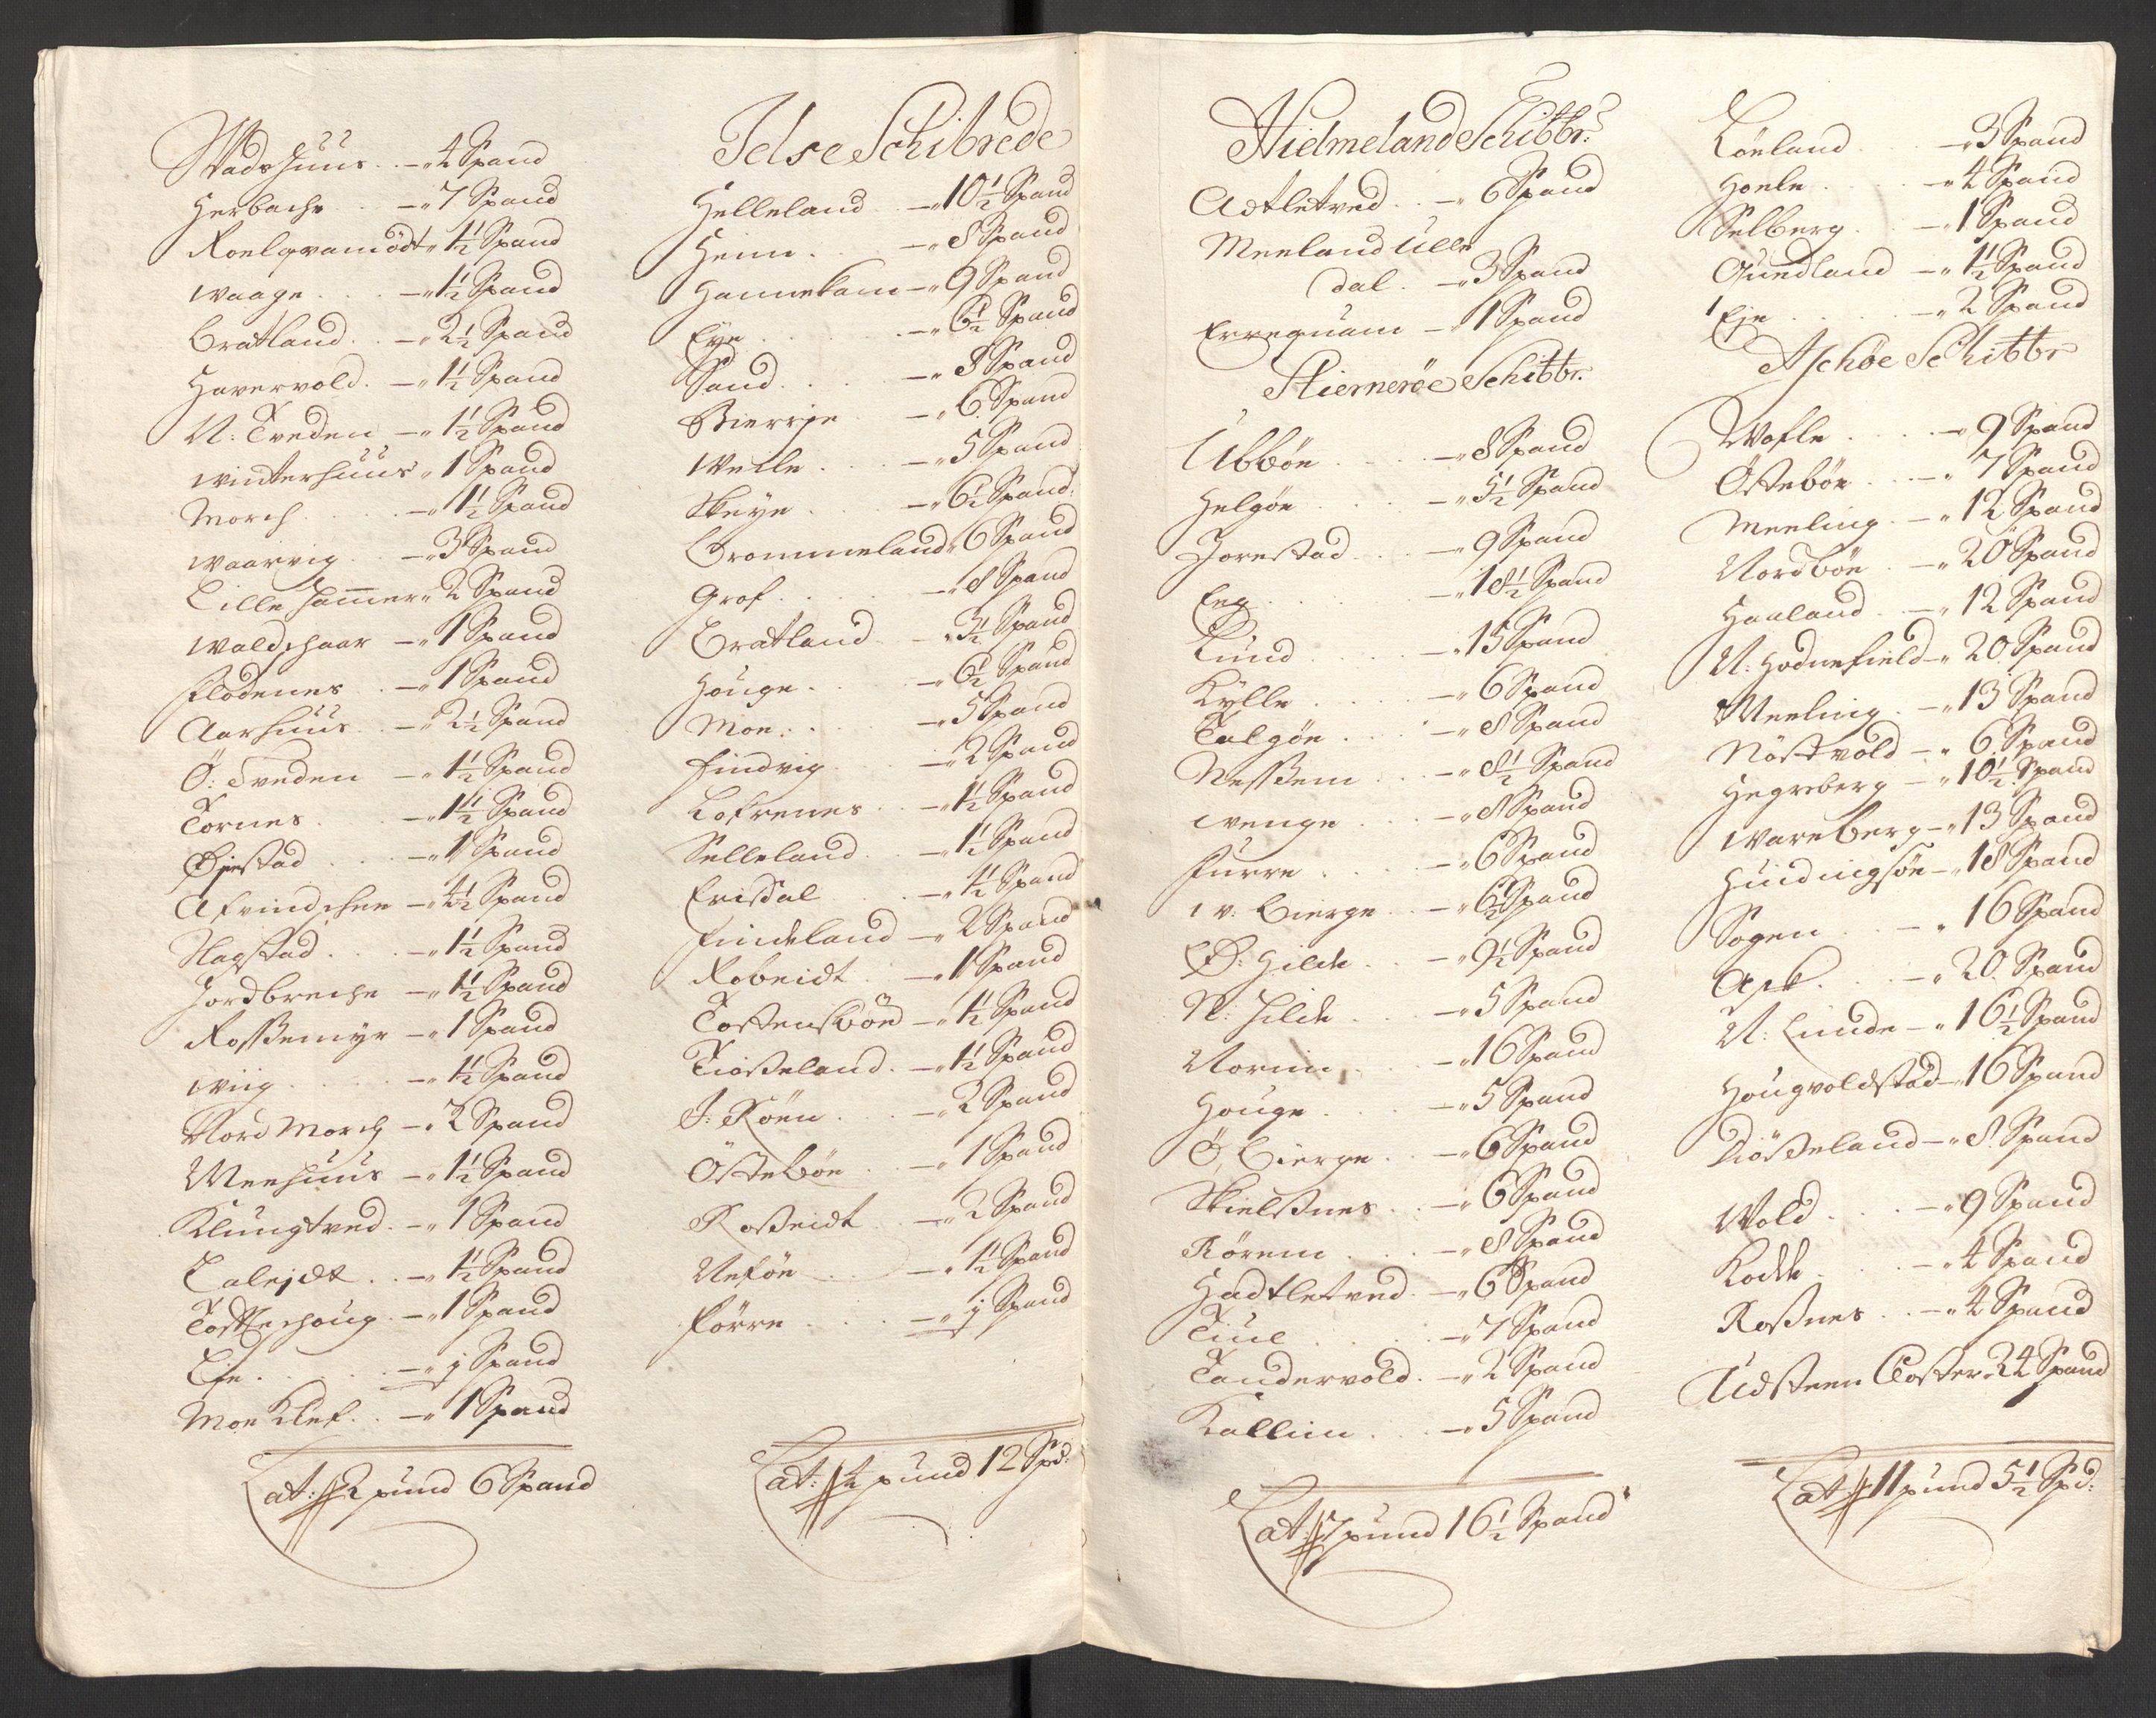 Wadshuus . . — „ 4 Spand
Herbache . . — „ 7 Spand
Roelqvamödt „ 1½ Spand
Waage . . . — „ 1½ Spand
Bratland . . — „ 2½ Spand
Havervold . — „ 1½ Spand
N: Tveden — „ 1½ Spand
Winterhuus „ 1 Spand
Morch . . . — „ 1½ Spand
Waarvig . . — „ 3 Spand
Lille Hammer „ 2 Spand
Waldschaar — „ 1 Spand
Flodenes . . — „ 1 Spand
Aarhuus . . — „ 2½ Spand
Ö: Tveden — „ 1½ Spand
Tornes . . — „ 1½ Spand
Øjestad . . . — „ 1 Spand
Afvindschee — „ 4½ Spand
Nagstad . . . — „ 1½ Spand
Jordbreche — „ 1½ Spand
Rossemyr — „ 1 Spand
Wiig . . . . — „ 1½ Spand
Nord Morch — „ 2 Spand
Meehuus — „ 1½ Spand
Klungtved . — „ 1 Spand
Talejdt . . — „ 1½ Spand
Tostterhoug . — „ 1 Spand
Eje . . . . . — „ j Spand
Moe Klef . . — „ 1 Spand
Lat: 2 pund 6 Spand
Jelse Schibrede
Helleland . — „ 10½ Spand
Heim . . . — „ 8 Spand
Hannekam — „ 9 Spand
Eye . . . . — „ 6½ Spand
Sand . . . . — „ 8 Spand
Bierrje . . — „ 6 Spand
Welle . . . — „ 5 Spand
Skeye . . . — „ 6½ Spand:
Brommeland „ 6 Spand
Grof . . . . — „ 8 Spand
Bratland . — „ 3½ Spand
Houge . . . — „ 6½ Spand
Moe . . . . — „ 5 Spand
Findvig . . — „ 2 Spand
Lofrenes . . — „ 1½ Spand
Selleland . — „ 1½ Spand
Erisdal . . — „ 1½ Spand
Findeland — „ 2 Spand
Robeidt . . — „ 1 Spand
Tostensböe — „ 1½ Spand
Tiosseland . — „ 1½ Spand
J: Röen . . — „ 2 Spand
Östebøe . . — „ 1 Spand
Rosseidt . . — „ 2 Spand
Nesöe . . . — „ 1½ Spand
Förre . . . — „ j Spand
Lat: 4 pund 12 Spd:
Hielmeland Schibbr:
Adtletved . . — „ 6 Spand
Meeland Ulle
dal . — „ 3 Spand
Errequam — „ 1 Spand
Stiernerøe Schibbr.
Ubbøe . . . — „ 8 Spand
Helgøe . . . — „ 5½ Spand
Jorestad . . — „ 9 Spand
Eeg . . . . — „ 18½ Spand
Lund . . . . — „ 15 Spand
Kylle . . . — „ 6 Spand
Talgøe . . . — „ 8 Spand
Nessem . . . — „ 8½ Spand
Wenge . . . — „ 8 Spand
Furre . . . — „ 6 Spand
W: Bierge . — „ 6½ Spand
Ø: Hilde . . — „ 9½ Spand
N: Hilde . . — „ 5 Spand
Norim . . . — „ 16 Spand
Houge . . . — „ 5 Spand
Ø, Bierge . . — „ 6 Spand
Skielssnes . . — „ 6 Spand
Rörem . . . — „ 8 Spand
Hadtletved . — „ 6 Spand
Tiul . . . . — „ 7 Spand
Tandervold . — „ 2 Spand
Kallim . . . — „ 5 Spand
Lat: 7 pund 16½ Spand
Löeland . . — „ 3 Spand
Hoele . . . — „ 4 Spand
Selberg . . — „ 1 Spand
Quedland — „ 1½ Spand
Eje . . . . — „ 2 Spand
Aschøe Schibbr
Wofle . . . — „ 9 Spand
Östebøe . . — „ 7 Spand
Meeling . — „ 12 Spand
Nordbøe . — „ 20 Spand
Haaland . — „ 12 Spand
N: Hodnefield „ 20 Spand
Meeling . — „ 13 Spand
Nöstvold — „ 6 Spand
Hegreberg — „ 10½ Spand
Wareberg — „ 13 Spand
Huidingsöe — „ 18 Spand
Sogen . . . — „ 16 Spand
Ask . . . — „ 20 Spand
N: Lunde — „ 16½ Spand
Hougvoldstad — „ 16 Spand
Diösseland — „ 8 Spand
Wold . . . — „ 9 Spand
Lodde . . . — „ 4 Spand
Rossnes . . — „ 4 Spand
Udsteen Closter „ 24 Spand
Lat: 11 pund 5½ Spd: